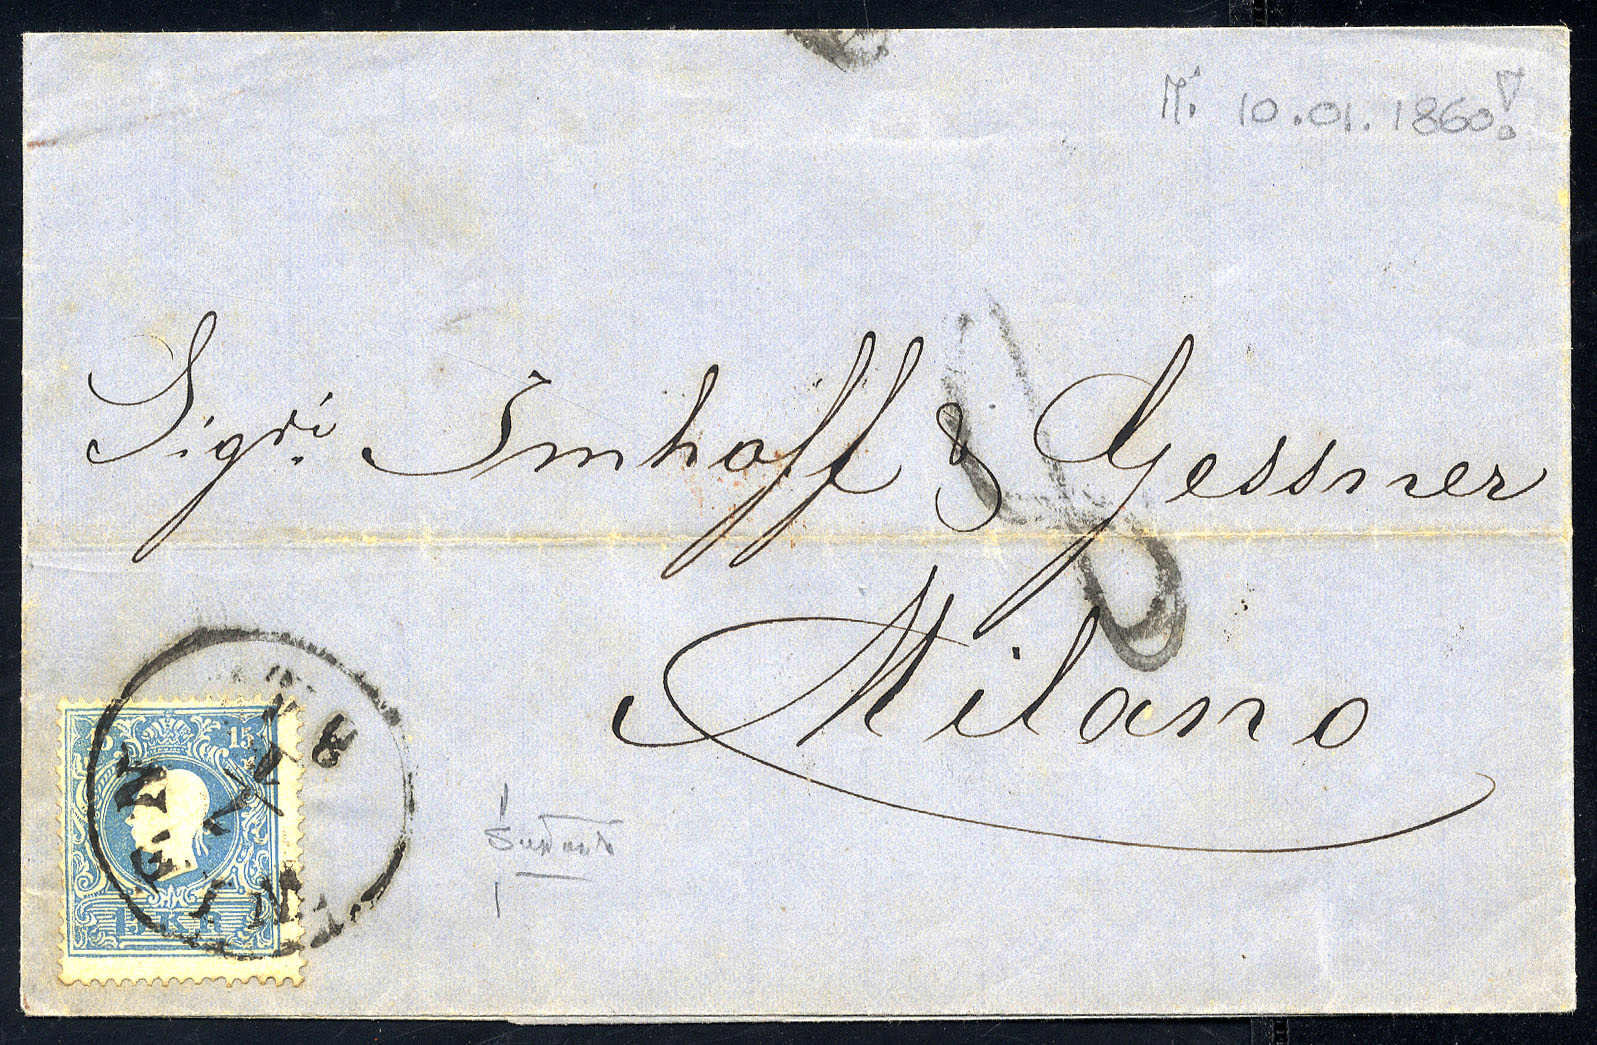 10.01.1860!
Sigri. Imhoff & Gessner
Milano
15
15 KR